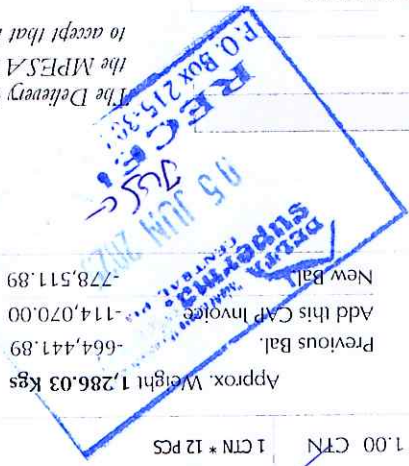 1.00 CTN 1 CTN * 12 PCS
Approx. Weight 1,286.03 Kgs
Previous Bal. -664,441.89
Add this CAP Invoice -114,070.00
New Bal. -778,511.89
DELTA
CENTRAL
05 JUN 202
RECEI
P.O. Box 215-30
The Delievery
the MPESA
to accept that